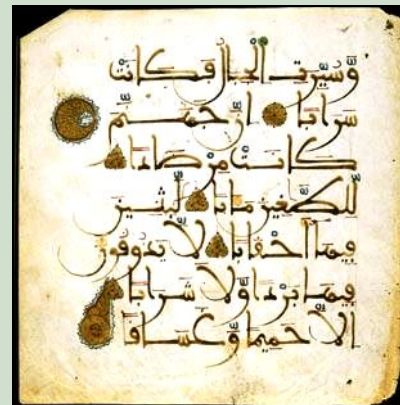 وَسُيِّرَتِ الْجِبَالُ فَكَانَتْ
سَرَابًا إِنَّ جَهَنَّمَ
كَانَتْ مِرْصَادًا
لِّلطَّٰغِينَ مَـَٔابًا لَّٰبِثِينَ
فِيهَا أَحْقَابًا لَّا يَذُوقُونَ
فِيهَا بَرْدًا وَلَا شَرَابًا
إِلَّا حَمِيمًا وَغَسَّاقًا